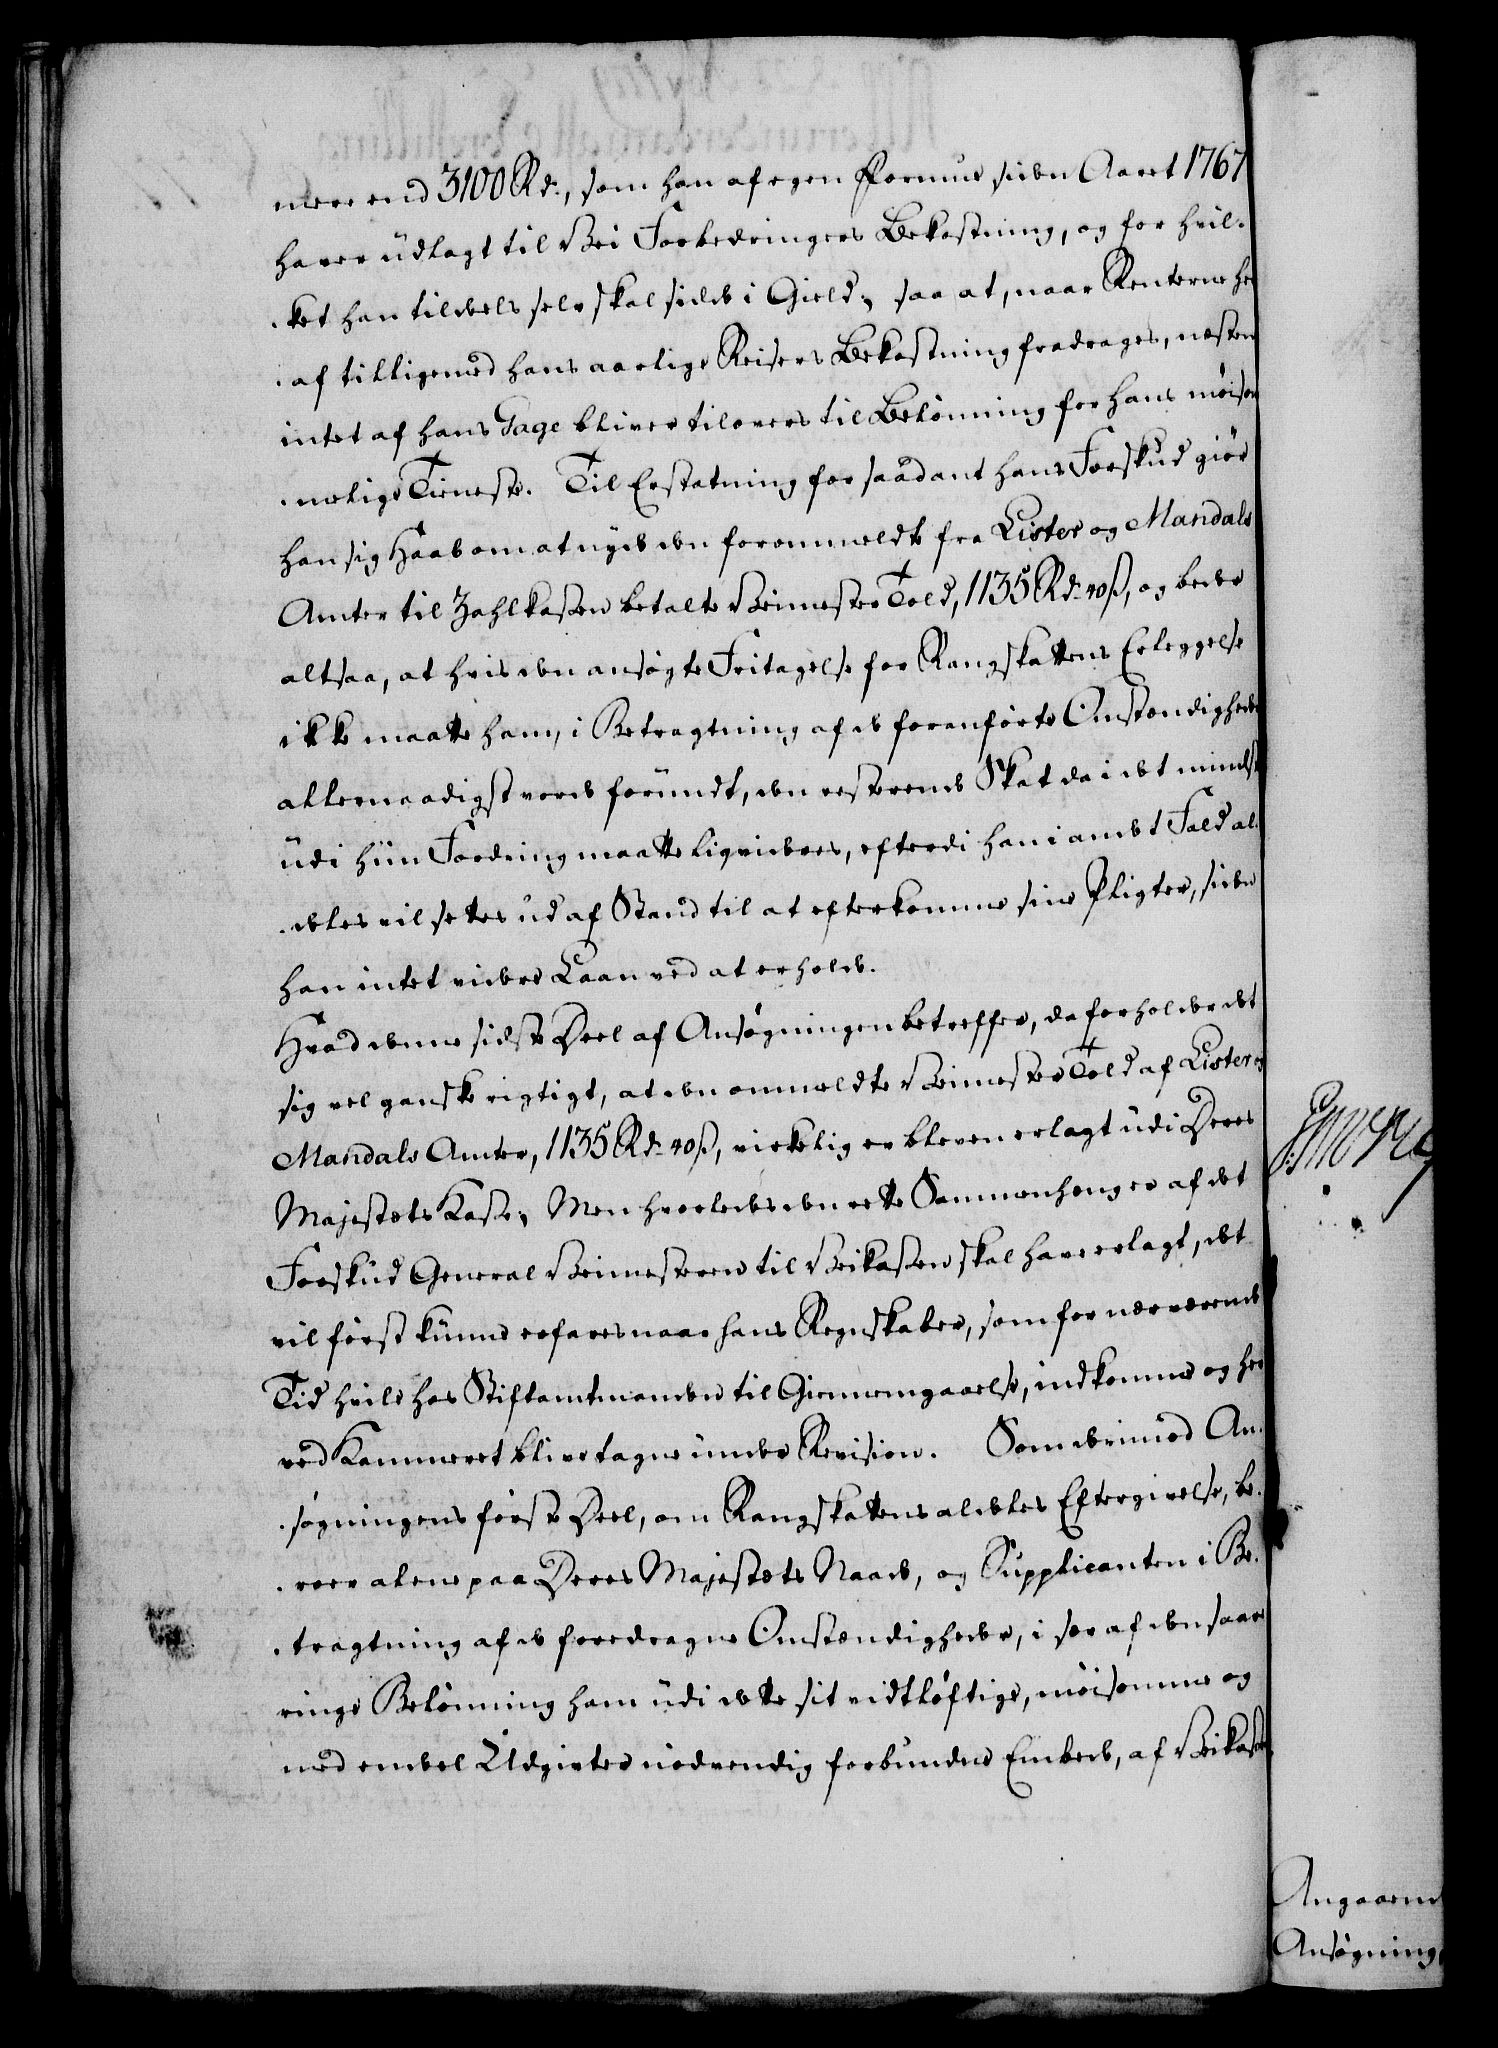 meer end 3100 Rd:, som han af egen Formue siden Aaret 1767
haver udlagt til Vei Forbedringers Bekostning, og for hvil-
ket han tildeels selv skal sidde i Gield; saa at, naar Renterne her-
af tilligemed hans aarlige Reisers Bekostning fradrages, næsten
intet af hans Gage bliver tilovers til Belønning for hans møisom-
melige Tieneste. Til Erstatning for saadant hans Forskud giør
han sig Haab om at nyde den forommeldte fra Lister og Mandals
Amter til Zahlkassen betalte Veimester Told, 1135 Rd: 40 ß, og beder
altsaa, at hvis den ansøgte Fritagelse for Rangskattens Erleggelse
ikke maatte ham, i Betragtning af de foranførte Omstændigheder
allernaadigst vorde forundt, den resterende Skat da i det mindste
udi hiin Fordring maatte liqvideres, efterdi han i andet Fald al-
deles vil settes ud af Stand til at efterkomme sine Pligter, siden
han intet videre Laan ved at erholde.
Hvad denne sidste Deel af Ansøgningen betreffer, da forholder det
sig vel ganske rigtigt, at den ommeldte Veimester Told af Lister og
Mandals Amter, 1135 Rd: 40 ß, virkelig er bleven erlagt udi Deres
Majestæts Kasse; Men hvorledes den rette Sammenheng er af det
Forskud General Veimesteren til Veikassen skal have erlagt, det
vil først kunne erfares naar hans Regnskaber, som for nærværende
Tid hvile hos Stiftamtmanden til Giennemgaaelse, indkomme og her
ved Kammeret blive tagne under Revision. Som derimod An-
søgningens første Deel, om Rangskattens aldeles Eftergivelse, be-
roer alene paa Deres Majestæts Naade, og Supplicanten i Be-
tragtning af de foredragne Omstændigheder, i sær af den saare
ringe Belønning ham udi dette sit vidtløftige, møisomme og
med en deel Udgivter nødvendig forbundne Embede, af Veikassen
Angaaend
Ansøgning